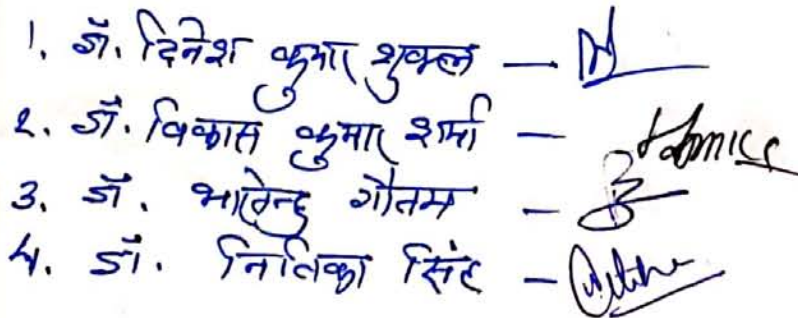 1. डॉ. दिनेश कुमार शुक्ल —
2. डॉ. विकास कुमार शर्मा —
3. डॉ. भारतेन्दु गौतम —
4. डॉ. नितिका सिंह —